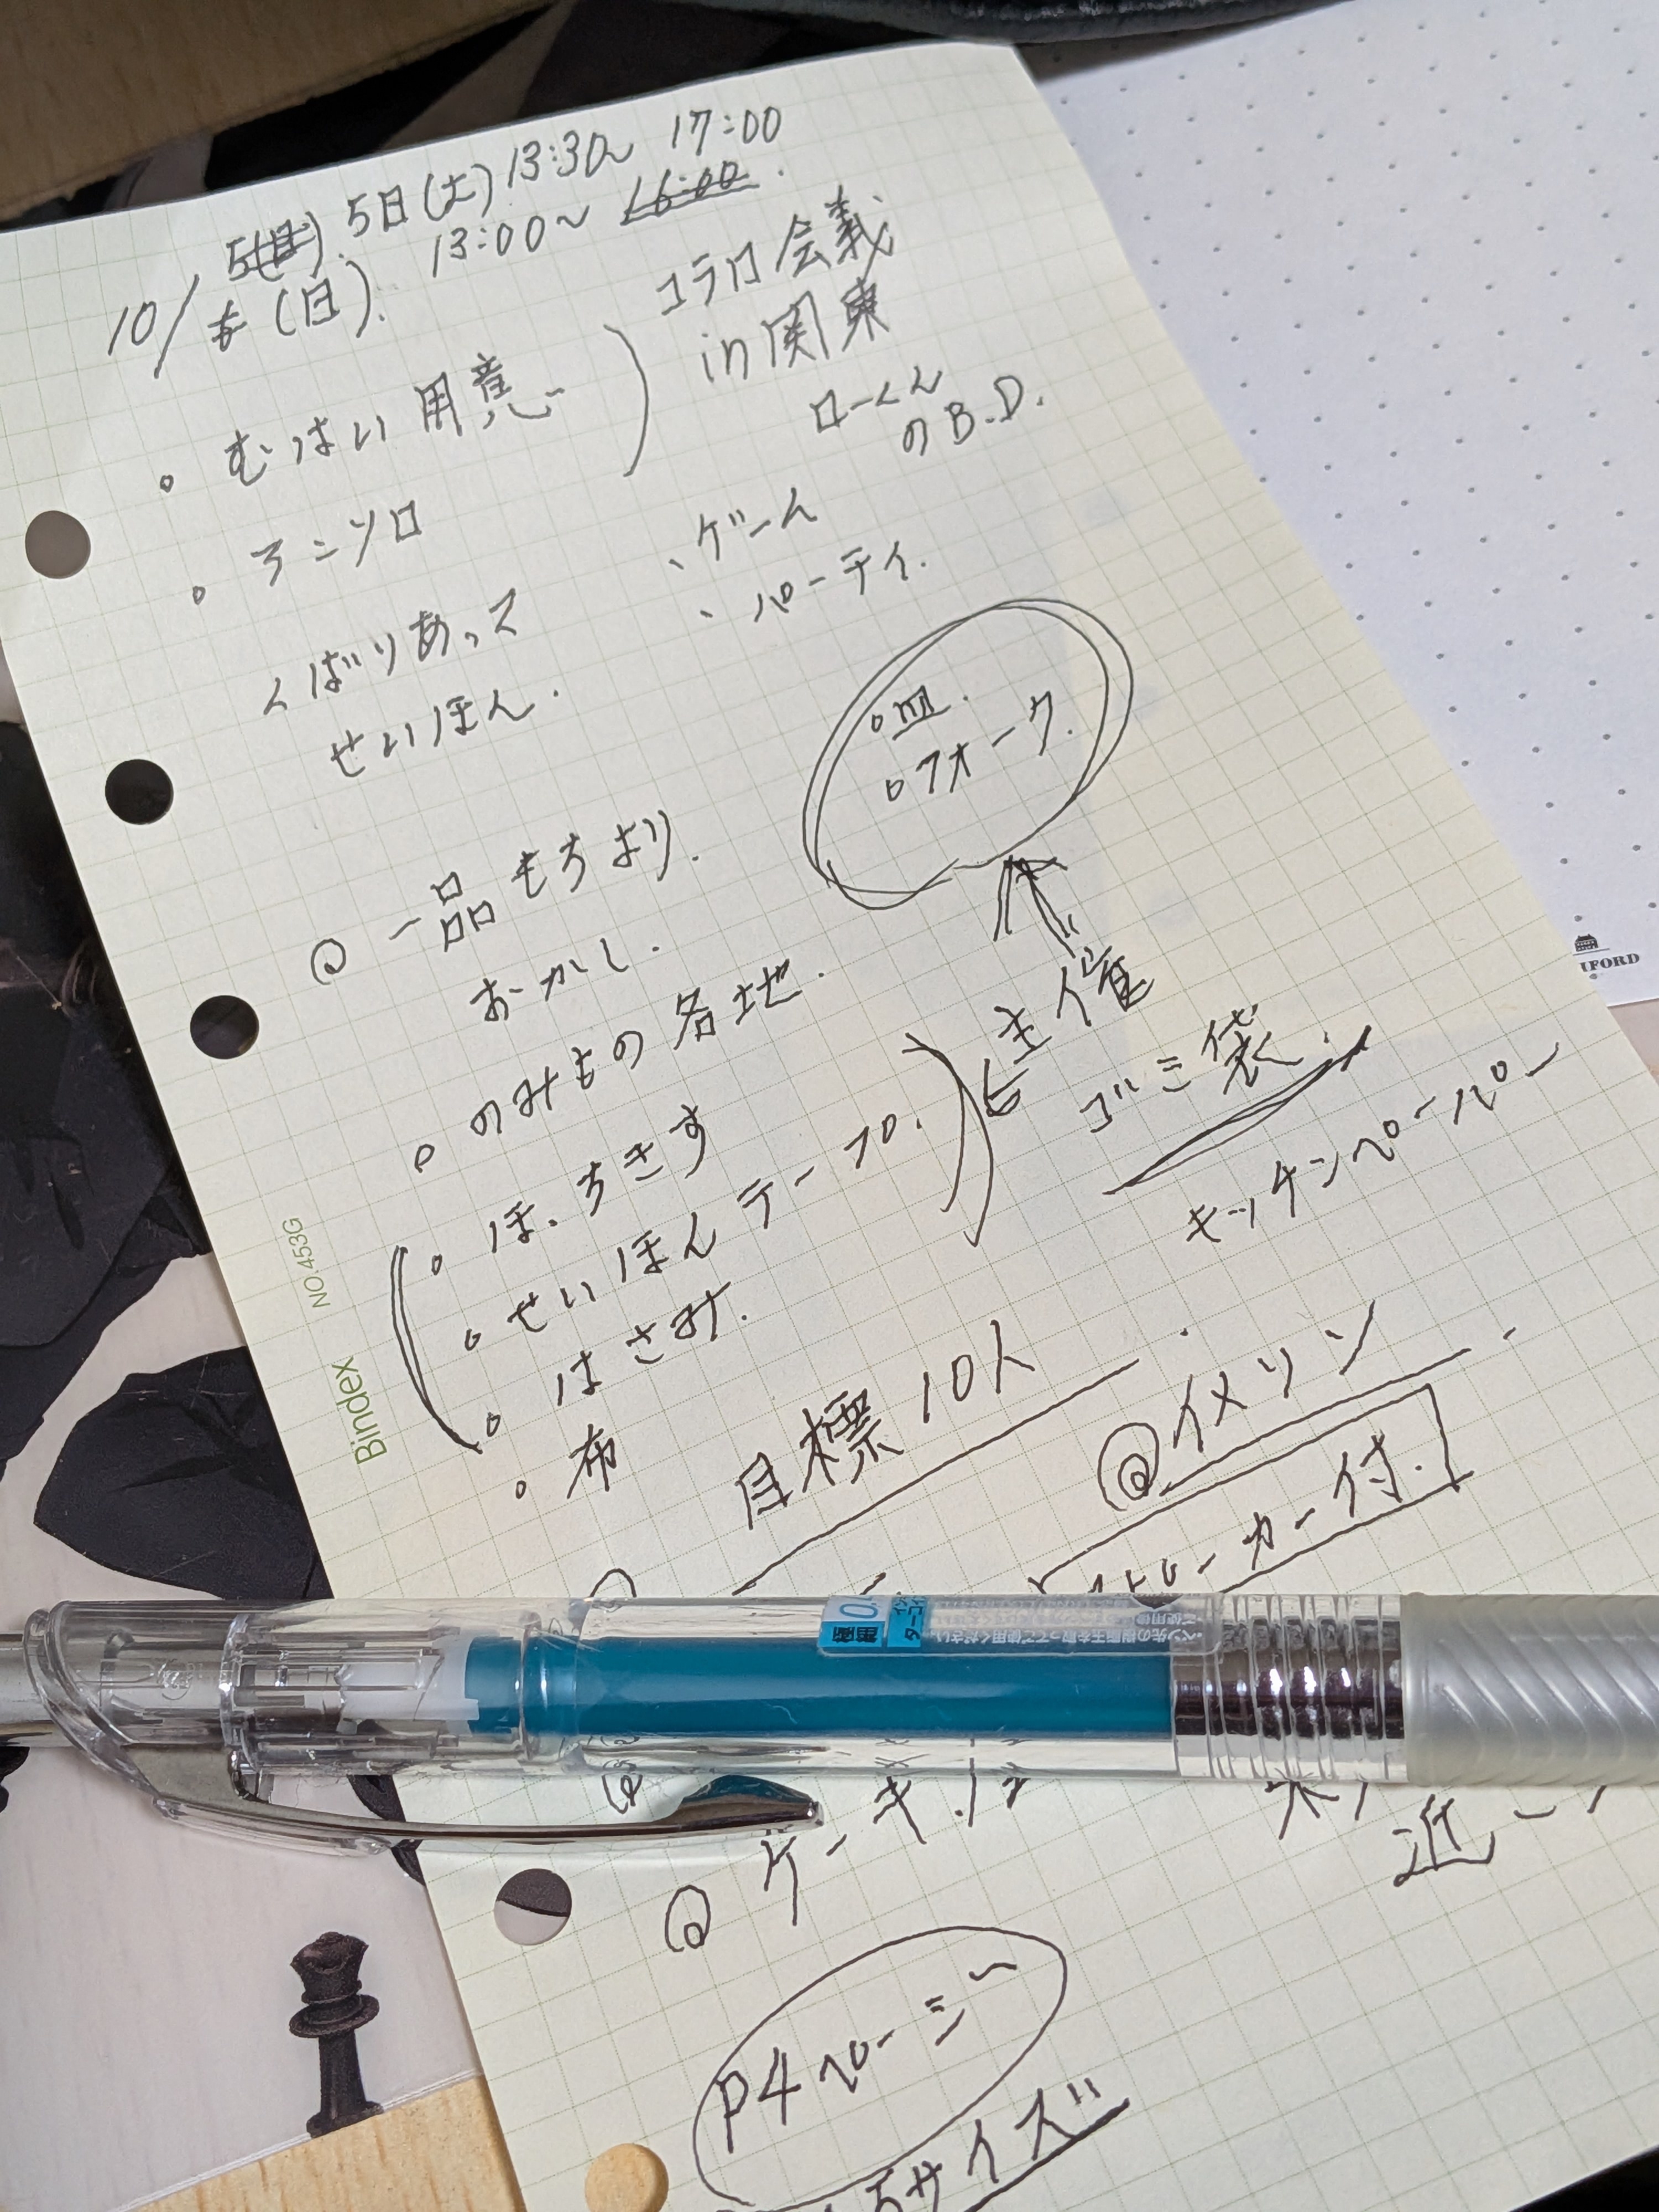 5日(土) 13:30~ 17:00
10/ (日). 13:00~ 16:00.
コラロ会議
in 関東
ローくん
のB.D.
。むはい用意
。アンソロ
くばりあって
せいほん.
、ゲーム
、パーティ.
。皿.
。フォーク.
@ 一品もちより.
おかし.
。のみもの各地.
。ほっちきす
。せいほんテープ.
。はさみ.
。布
主催
ゴミ袋.
キッチンペーパー
目標10人
@イメソン
カー付.
@ケーキ
近
P4ページ
サイズ
Bindex
NO.453G
IFORD
極細